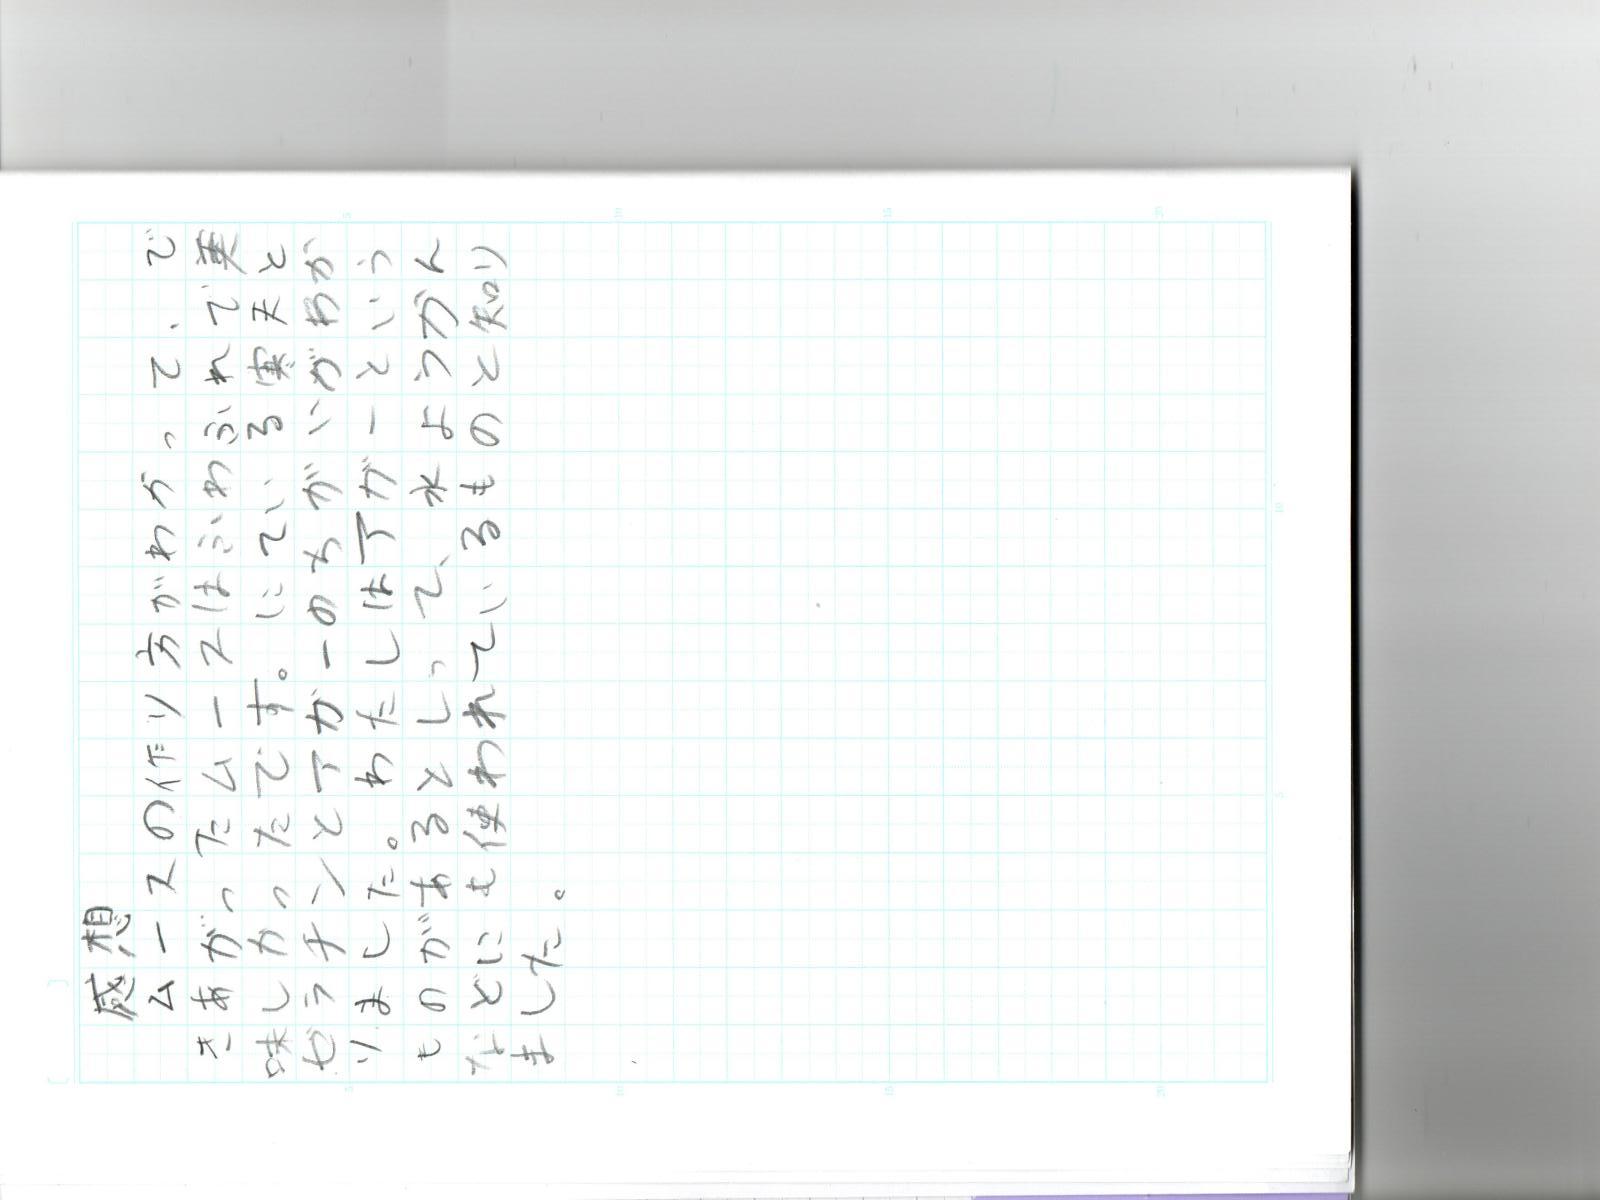 感想
ムースの作り方がわかって、で
きあがったムースはふわふわで美
味しかったです。にている寒天と
ゼラチンとアガーのちがいがわか
りました。わたしはアガーという
ものがあるとしって、水ようかん
などにも使われているものと知り
ました。